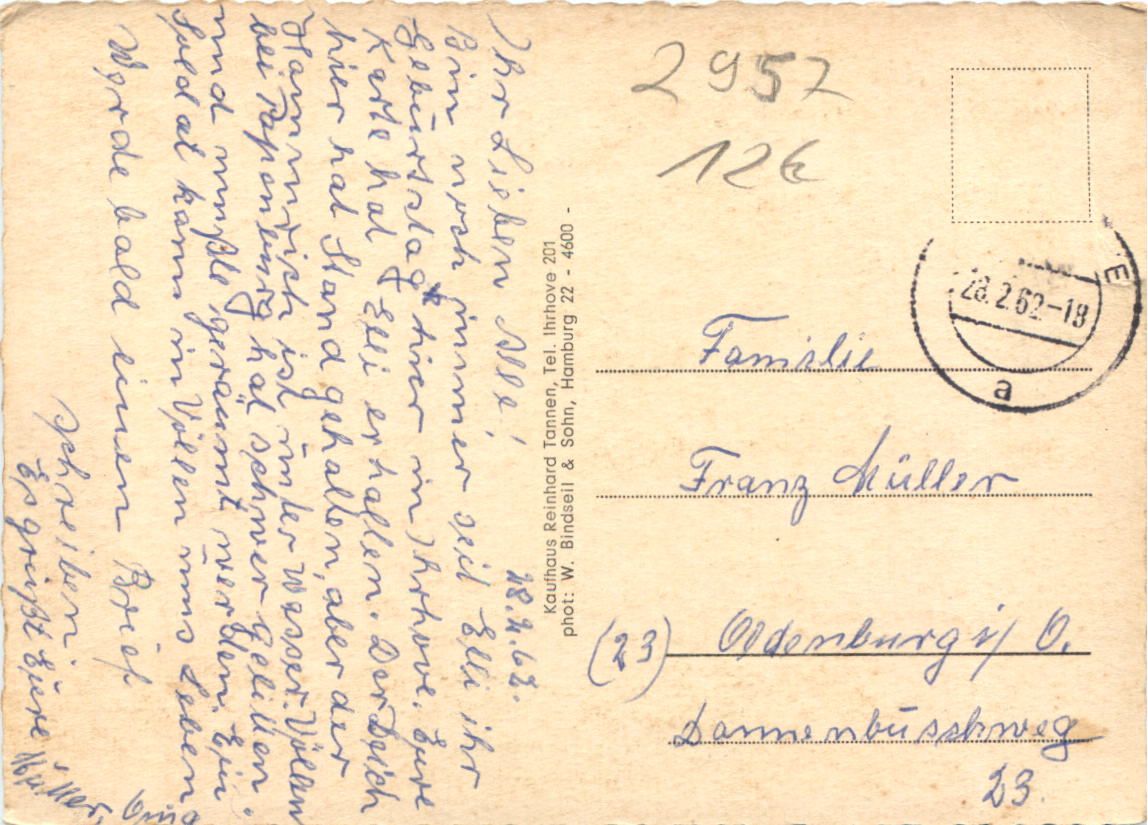 28.2.62.
Ihr Lieben Alle!
Bin noch immer seit Elli ihr
Geburtstag hier in Ihrhove. Eure
Karte hat Elli erhalten. Der Deich
hier hat Stand gehalten, aber der
Hammrich ist unter Wasser. Völlen
bei Papenburg hat schwer gelitten
und mußte geräumt werden. Ein
Soldat kam in Völlen ums Leben
Werde bald einen Brief
schreiben.
Es grüßt Eure
und
Kaufhaus Reinhard Tannen, Tel. Ihrhove 201
phot: W. Bindseil & Sohn, Hamburg 22 - 4600 -
2957
12€
E
28.2.62-18
a
Familie
Franz Müller
(23) Oldenburg i/O.
Dannenbuschweg
23.